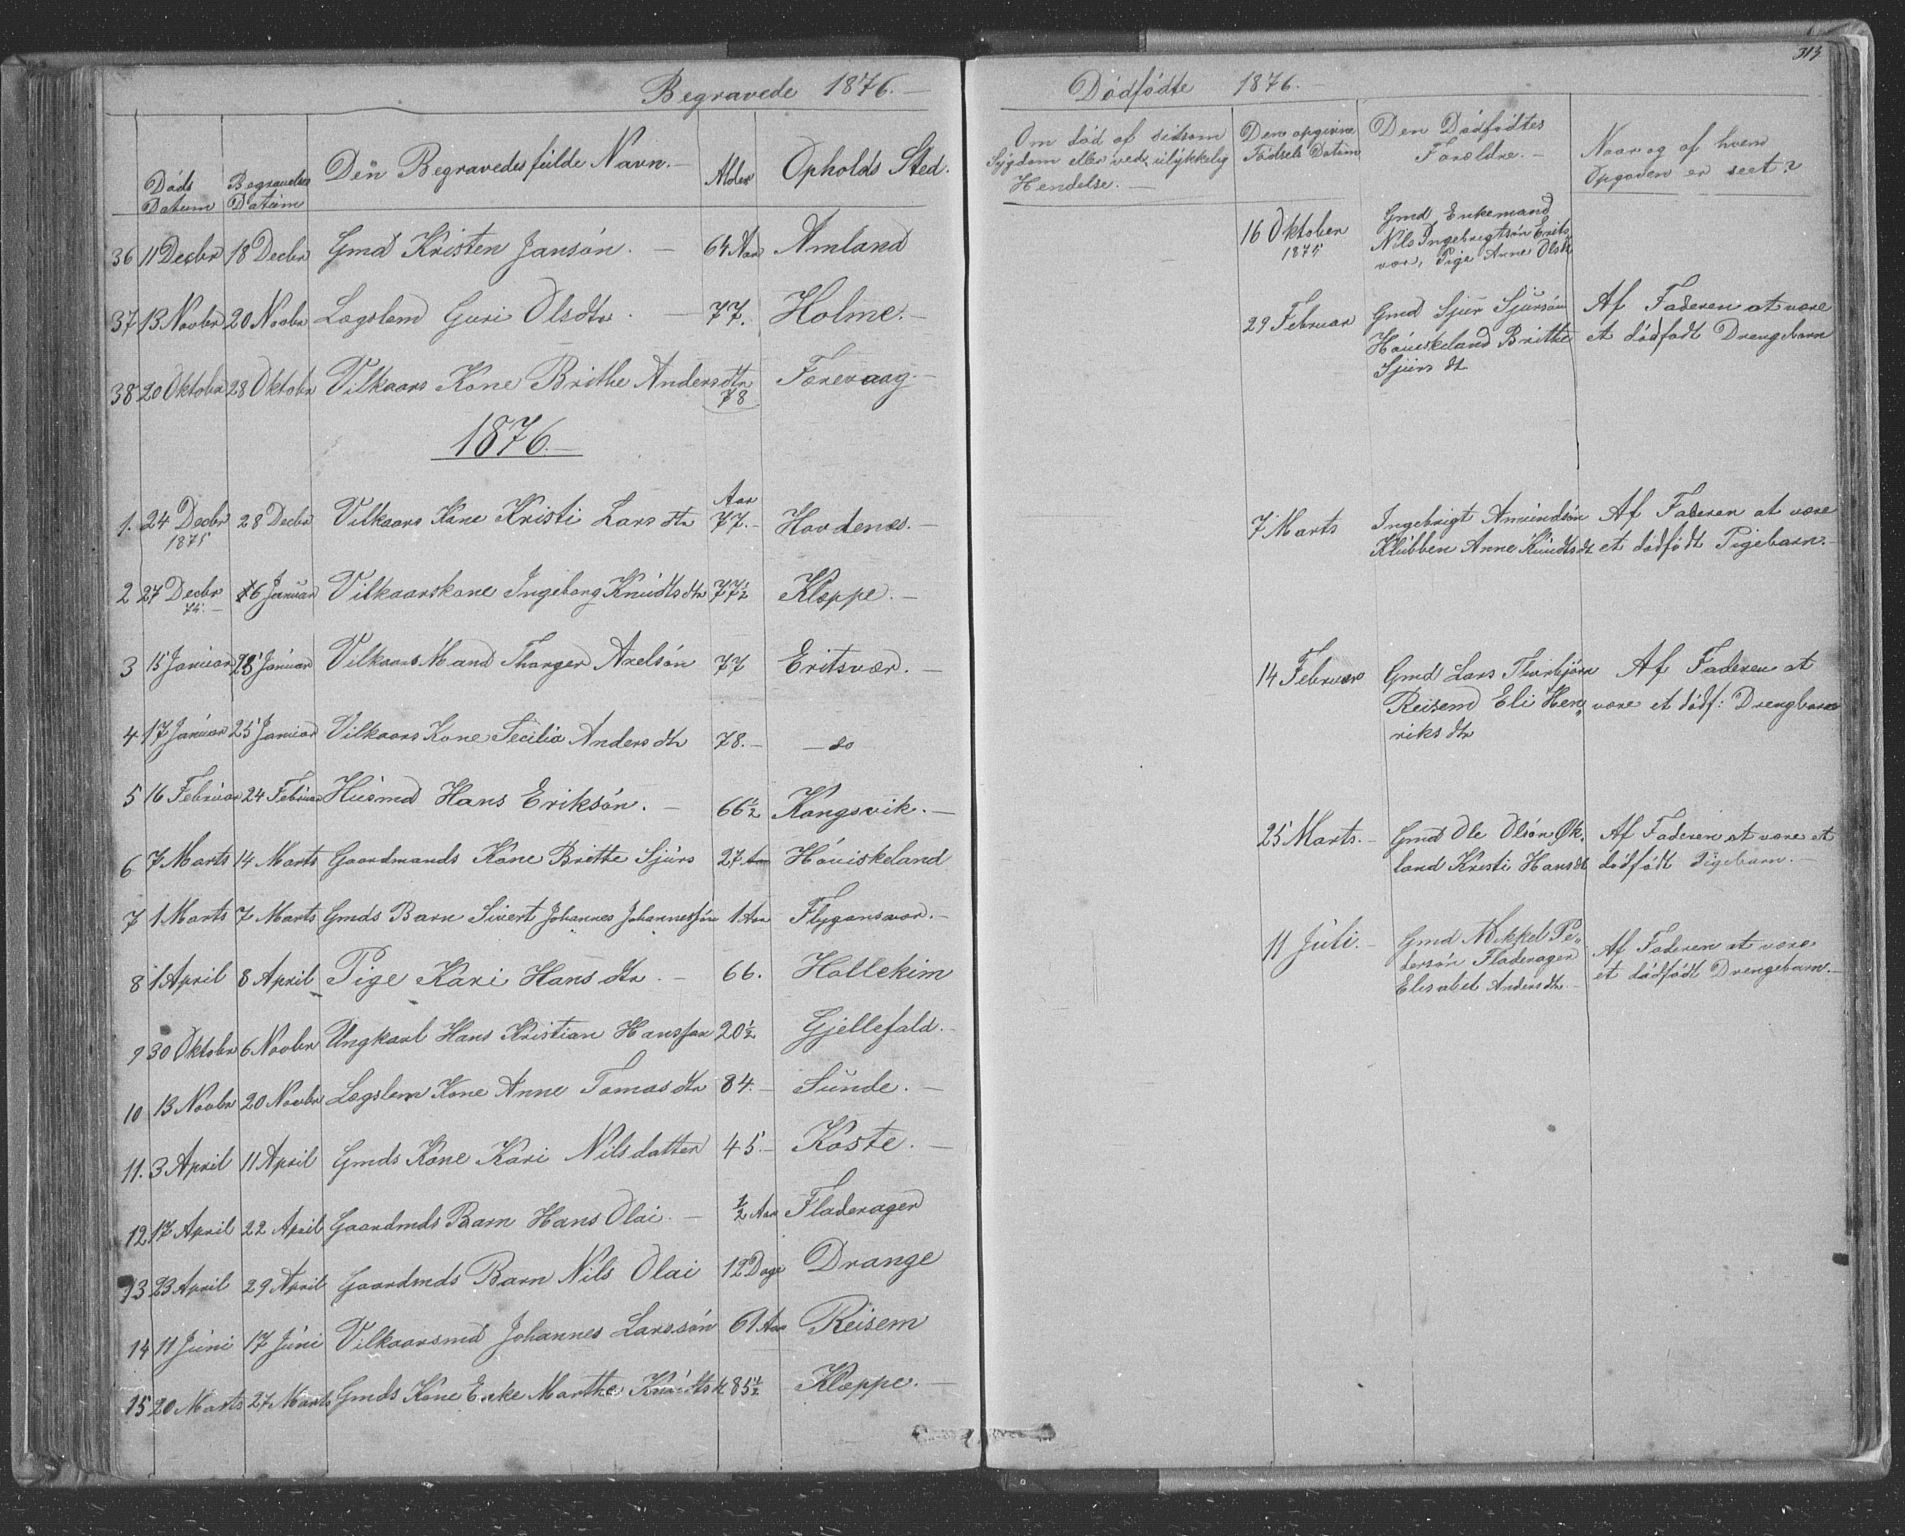 Begravede 1876.—
Døds Datum
Begravelses Datum
Den Begravedes fulde Navn.—
Alder
Opholds Sted.
36 11 Decbr 18 Decbr Gmd Kristen Jansøn. — 64 Aar Amland
37 13 Novbr 20 Novbr Lægslem Guri Olsdtr. — 77. Holme.—
38 20 Oktobr 28 Oktobr Vilkaars Kone Brithe Andersdtr 78 Færevaag.—
1876.—
1. 24 Decbr 1875 28 Decbr Vilkaars Kone Kristi Larsdtr Aar 77.— Hovdenæs.—
2 27 Decbr 75.— 16 Januar Vilkaarskone Ingeborg Knudtsdtr 77½ Klæppe.—
3 15 Januar 25 Januar Vilkaars Mand Thorger Axelsøn 77 Eritsvær.—
4 17 Januar 25 Januar Vilkaars Kone Secilia Andersdtr 78.— — do
5 16 Februar 24 Februar Husmd Hans Eriksøn. — 66½ Kongsvik.—
6 7 Marts 14 Marts Gaardmands Kone Brithe Sjurs 27 Aar Houiskeland
7 1 Marts 7 Marts Gmds Barn Sivert Johannes Johannessøn 1 Aar Flygansvær.—
8 1 April 8 April Pige Kari Hansdtr. — 66. Hollekim
9 30 Oktobr 6 Novbr Ungkarl Hans Kristian Hanssøn 20½ Gjellefald.—
10 13 Novbr 20 Novbr Lægslem Kone Anne Tomasdtr 84.— Sunde.—
11. 3 April 11 April Gmds Kone Kari Nilsdatter 45.— Koste.—
12 17 April 22 April Gaardmds Barn Hans Olai.— ½ Aar Fladerager
13 23 April 29 April Gaardmds Barn Nils Olai 12 Dage Drange
14 11 Juni 17 Juni Vilkaarsmd Johannes Larssøn 61 Aar Reisem
15 20 Marts 27 Marts Gmds Kone Enke Marthe Knudtsd 85½ Klæppe.—
313
Dødfødte 1876.—
Om død af sådsom
Sygdom eller ved ulykkelig
Hendelse.—
Den opgivne
Fødsels Datum
Den Dødfødtes
Forældre.—
Naar og af hvem
Opgaven er seet?
16 Oktober
1875
Gmd Enkemand
Nils Ingebrigtsøn Erits
vær, Pige Anne Olsdt
29 Februar
Gmd Sjur Sjursøn
Houiskeland Brithe
Sjursdt
Af Faderen at være
et dødfødt Drengebarn
7 Marts
Ingebrigt Amundsøn
Klubben Anne Knudtsdt
Af Faderen at være
et dødfødt Pigebarn.—
14 Februar
Gmd Lars Thorbjørn
Reisem Eli Hen„
riksdtr
Af Faderen at
være et dødf: Drengbarn
25 Marts.—
Gmd Ole Olsøn Øk.
land Kristi Hansdt
Af Faderen at være et
dødfødt Pigebarn.—
11 Juli.—
Gmd Mikkel Pe„
dersøn Fladerager
Elisabet Andersdtr.
Af Faderen at være
et dødfødt Drengebarn.—